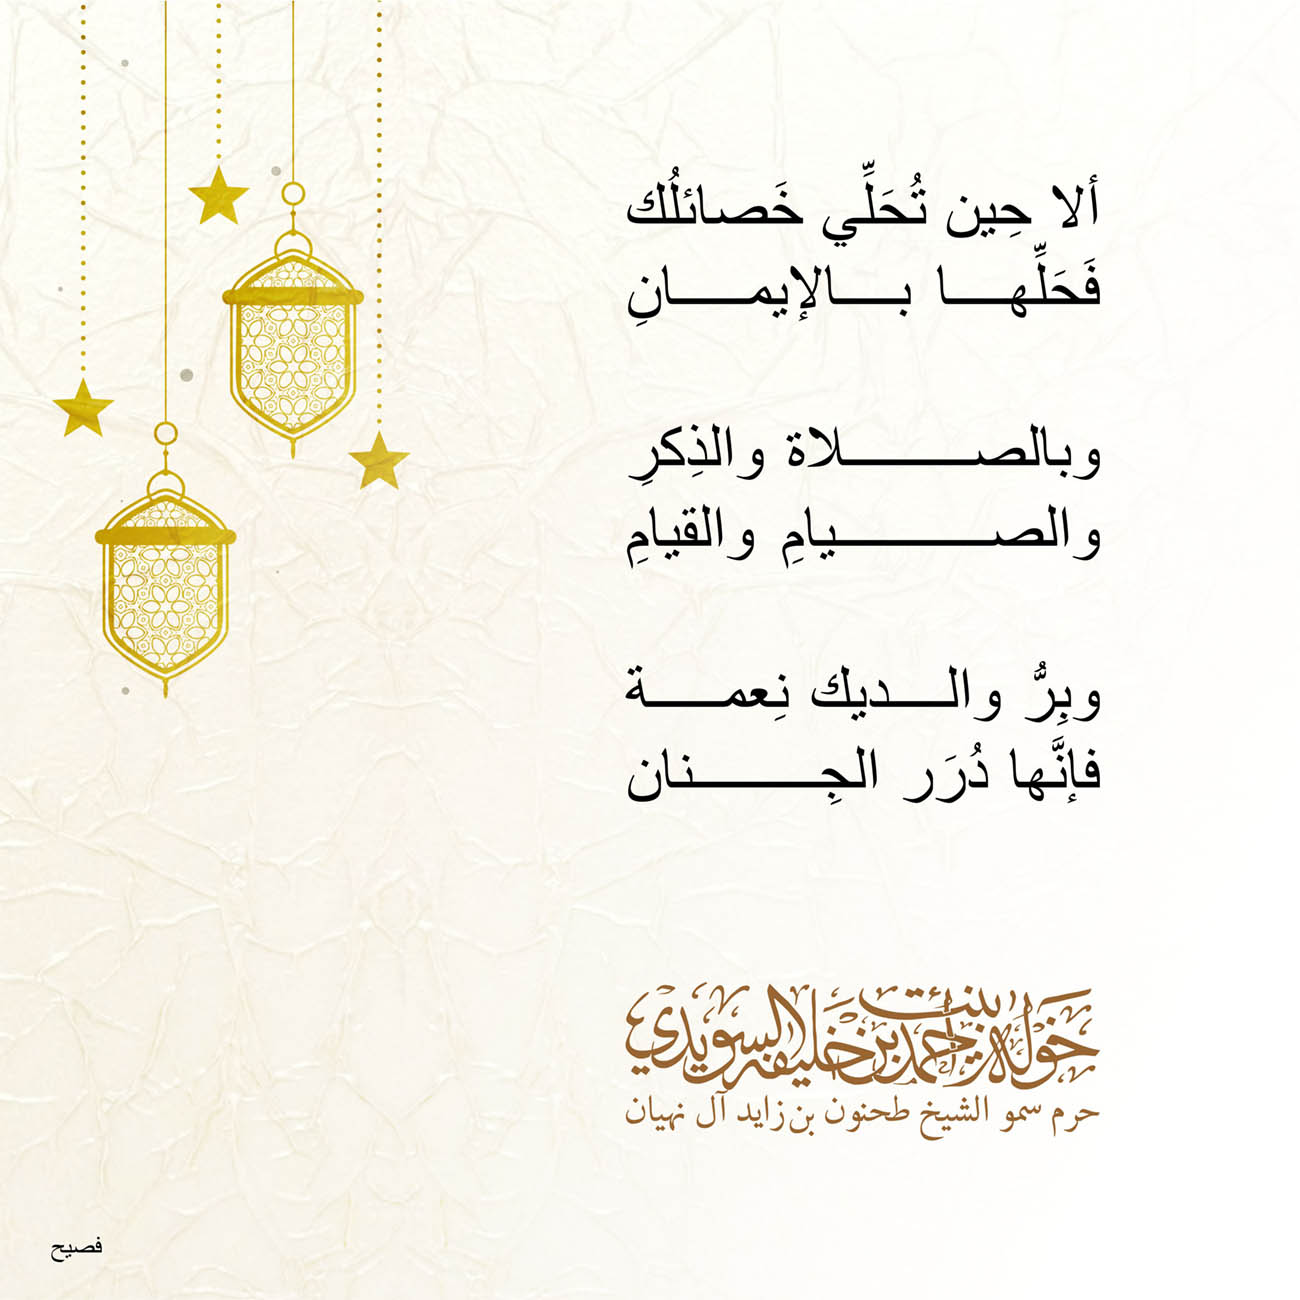 ألا حِين تُحَلِّي خَصائلُك
فَحَلِّها بالإيمانِ
وبالصلاة والذِكرِ
والصيامِ والقيامِ
وبِرُّ والديك نِعمة
فإنَّها دُرَر الجِنان
خولة بنت أحمد بن خليفة السويدي
حرم سمو الشيخ طحنون بن زايد آل نهيان
فصيح